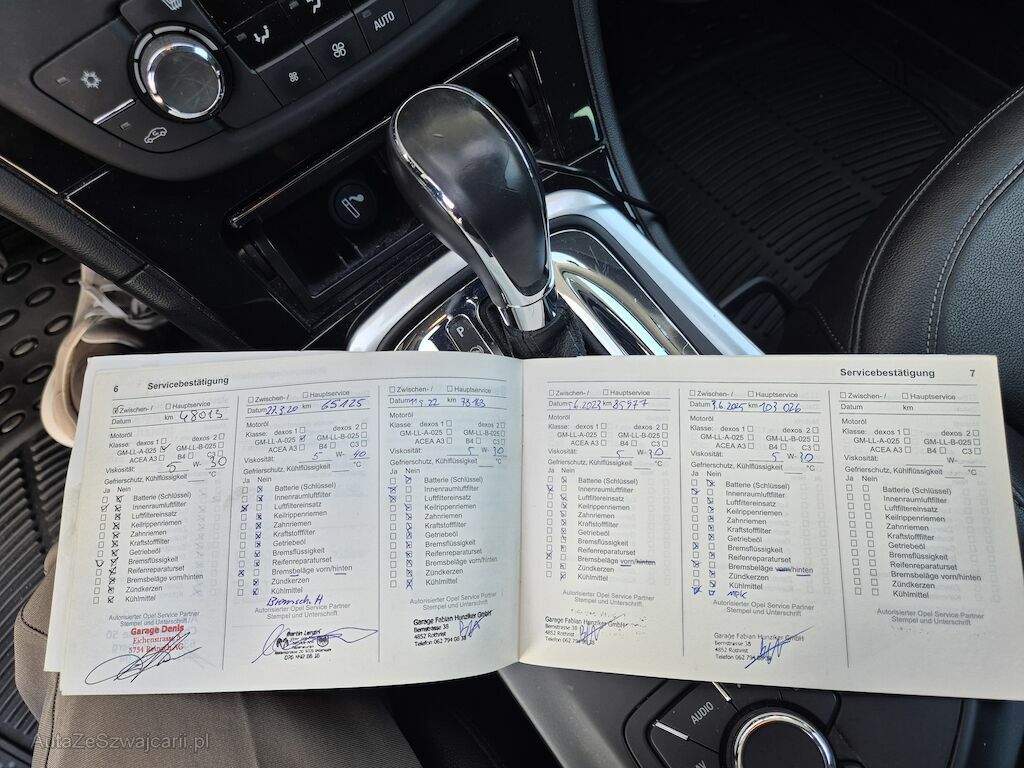 AUTO
P
6 Servicebestätigung
Zwischen- / Hauptservice
km 48013
Motoröl
Klasse: dexos 1 dexos 2
GM-LL-A-025 GM-LL-B-025
ACEA A3 B4 C3
Viskosität: 5 W- 30
Gefrierschutz, Kühlflüssigkeit °C
Ja Nein
Batterie (Schlüssel)
Innenraumluftfilter
Luftfiltereinsatz
Keilrippenriemen
Zahnriemen
Kraftstofffilter
Getriebeöl
Bremsflüssigkeit
Reifenreparaturset
Bremsbeläge vorn/hinten
Zündkerzen
Kühlmittel
Autorisierter Opel Service Partner
Stempel und Unterschrift
Garage Denis
5734 Reinach AG
Zwischen- / Hauptservice
Datum 27.3.20 km 65125
Motoröl
Klasse: dexos 1 dexos 2
GM-LL-A-025 GM-LL-B-025
ACEA A3 B4 C3
Viskosität: 5 W- 40
Gefrierschutz, Kühlflüssigkeit °C
Ja Nein
Batterie (Schlüssel)
Innenraumluftfilter
Luftfiltereinsatz
Keilrippenriemen
Zahnriemen
Kraftstofffilter
Getriebeöl
Bremsflüssigkeit
Reifenreparaturset
Bremsbeläge vorn/hinten
Zündkerzen
Kühlmittel
Bremsch. H
Autorisierter Opel Service Partner
Stempel und Unterschrift
Zwischen- / Hauptservice
Datum km
Motoröl
Klasse: dexos 1 dexos 2
GM-LL-A-025 GM-LL-B-025
ACEA A3 B4 C3
Viskosität: 5 W- 30
Gefrierschutz, Kühlflüssigkeit °C
Ja Nein
Batterie (Schlüssel)
Innenraumluftfilter
Luftfiltereinsatz
Keilrippenriemen
Zahnriemen
Kraftstofffilter
Getriebeöl
Bremsflüssigkeit
Reifenreparaturset
Bremsbeläge vorn/hinten
Zündkerzen
Kühlmittel
Autorisierter Opel Service Partner
Stempel und Unterschrift
Garage Fabian Hunziker GmbH
Bernstrasse 38
4852 Rothrist
Telefon 062 794 08 38
Servicebestätigung 7
Zwischen- / Hauptservice
Datum 5.6.2023 km 85977
Motoröl
Klasse: dexos 1 dexos 2
GM-LL-A-025 GM-LL-B-025
ACEA A3 B4 C3
Viskosität: 5 W- 30
Gefrierschutz, Kühlflüssigkeit °C
Ja Nein
Batterie (Schlüssel)
Innenraumluftfilter
Luftfiltereinsatz
Keilrippenriemen
Zahnriemen
Kraftstofffilter
Getriebeöl
Bremsflüssigkeit
Reifenreparaturset
Bremsbeläge vorn/hinten
Zündkerzen
Kühlmittel
Autorisierter Opel Service Partner
Stempel und Unterschrift
Garage Fabian Hunziker GmbH
Bernstrasse 38
4852 Rothrist
Zwischen- / Hauptservice
Datum 3.6.2025 km 103 026
Motoröl
Klasse: dexos 1 dexos 2
GM-LL-A-025 GM-LL-B-025
ACEA A3 B4 C3
Viskosität: 5 W- 30
Gefrierschutz, Kühlflüssigkeit °C
Ja Nein
Batterie (Schlüssel)
Innenraumluftfilter
Luftfiltereinsatz
Keilrippenriemen
Zahnriemen
Kraftstofffilter
Getriebeöl
Bremsflüssigkeit
Reifenreparaturset
Bremsbeläge vorn/hinten
Zündkerzen
Kühlmittel
MFK
Autorisierter Opel Service Partner
Stempel und Unterschrift
Garage Fabian Hunziker GmbH
Bernstrasse 38
4852 Rothrist
Telefon 062 794
Zwischen- / Hauptservice
Datum km
Motoröl
Klasse: dexos 1 dexos 2
GM-LL-A-025 GM-LL-B-025
ACEA A3 B4 C3
Viskosität: W-
Gefrierschutz, Kühlflüssigkeit °C
Ja Nein
Batterie (Schlüssel)
Innenraumluftfilter
Luftfiltereinsatz
Keilrippenriemen
Zahnriemen
Kraftstofffilter
Getriebeöl
Bremsflüssigkeit
Reifenreparaturset
Bremsbeläge vorn/hinten
Zündkerzen
Kühlmittel
Autorisierter Opel Service Partner
Stempel und Unterschrift
AUDIO
AutaZeSzwajcarii.pl